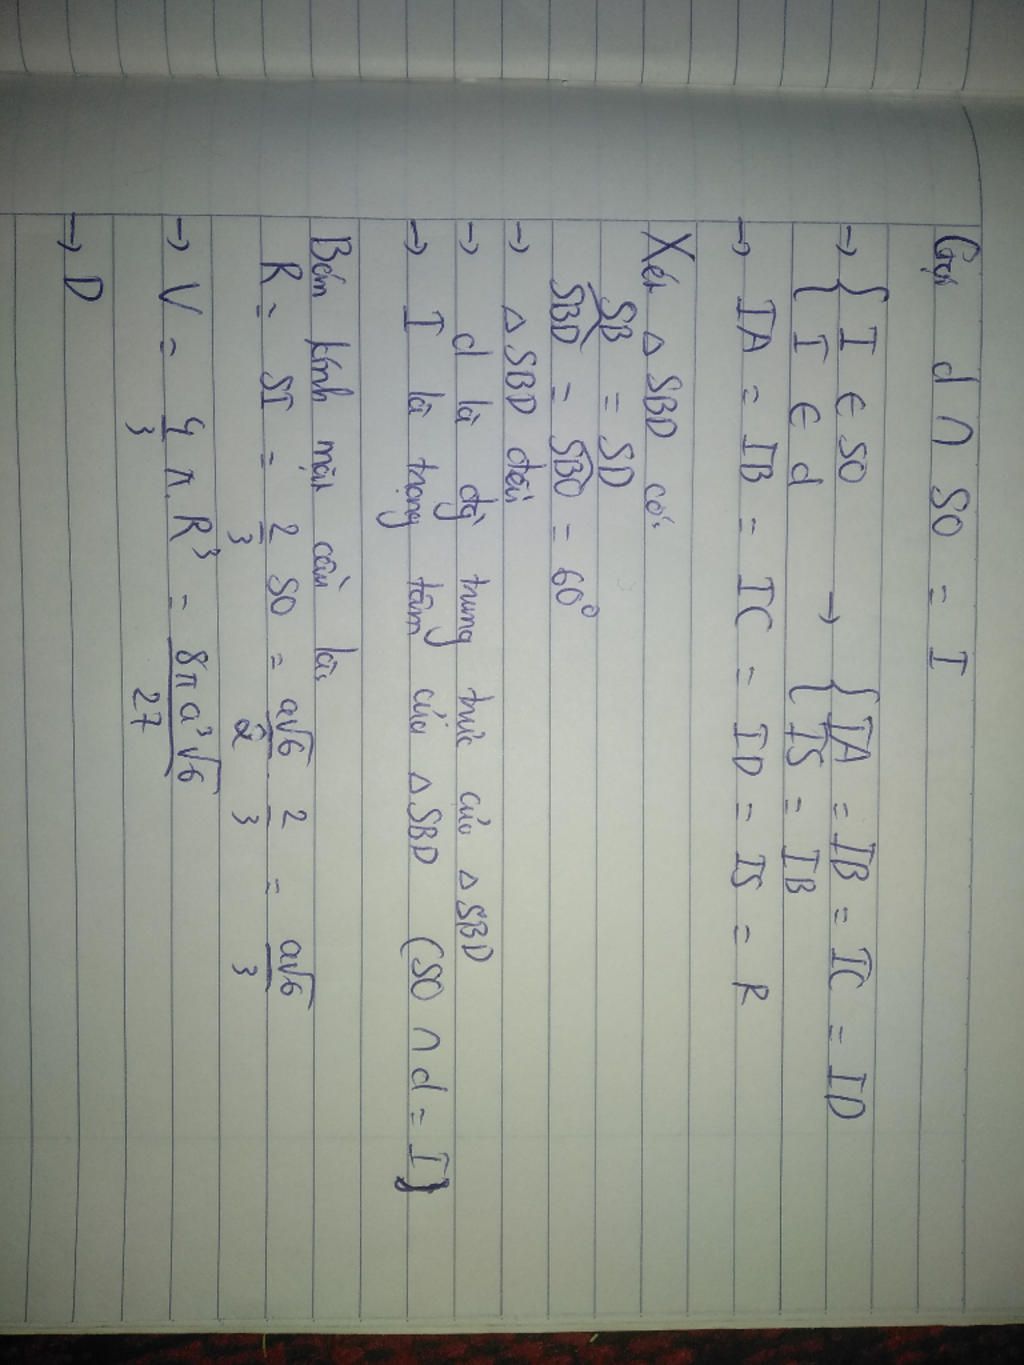 Gọi d ∩ SO = I
→ { I ∈ SO → { IA = IB = IC = ID
{ I ∈ d { IS = IB
→ IA = IB = IC = ID = IS = R
Xét △ SBD có:
SB = SD
SBD = SBO = 60°
→ △ SBD đều
→ d là đg trung trực của △ SBD
→ I là trọng tâm của △ SBD (SO ∩ d = I)
Bán kính mặt cầu là:
R = SI = 2/3 SO = a√6/2 2/3 = a√6/3
→ V = 4/3 π. R³ = 8πa³√6/27
→ D